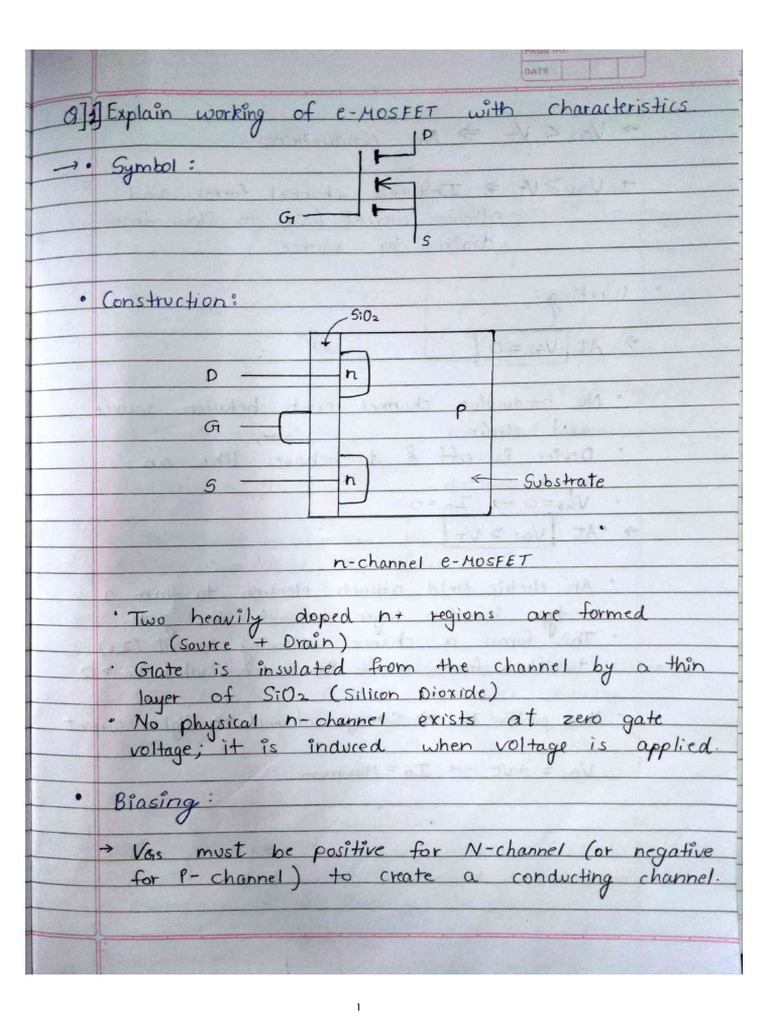 PAGE NO.
DATE:
Q]1] Explain working of e-MOSFET with characteristics.
→ • Symbol:
D
G
S
• Construction:
SiO2
D
n
P
G
S
n
Substrate
n-channel e-MOSFET
• Two heavily doped n+ regions are formed
(Source + Drain)
• Gate is insulated from the channel by a thin
layer of SiO2 (Silicon Dioxide)
• No physical n-channel exists at zero gate
voltage; it is induced when voltage is applied.
• Biasing:
→ VGS must be positive for N-channel (or negative
for P-channel) to create a conducting channel.
1